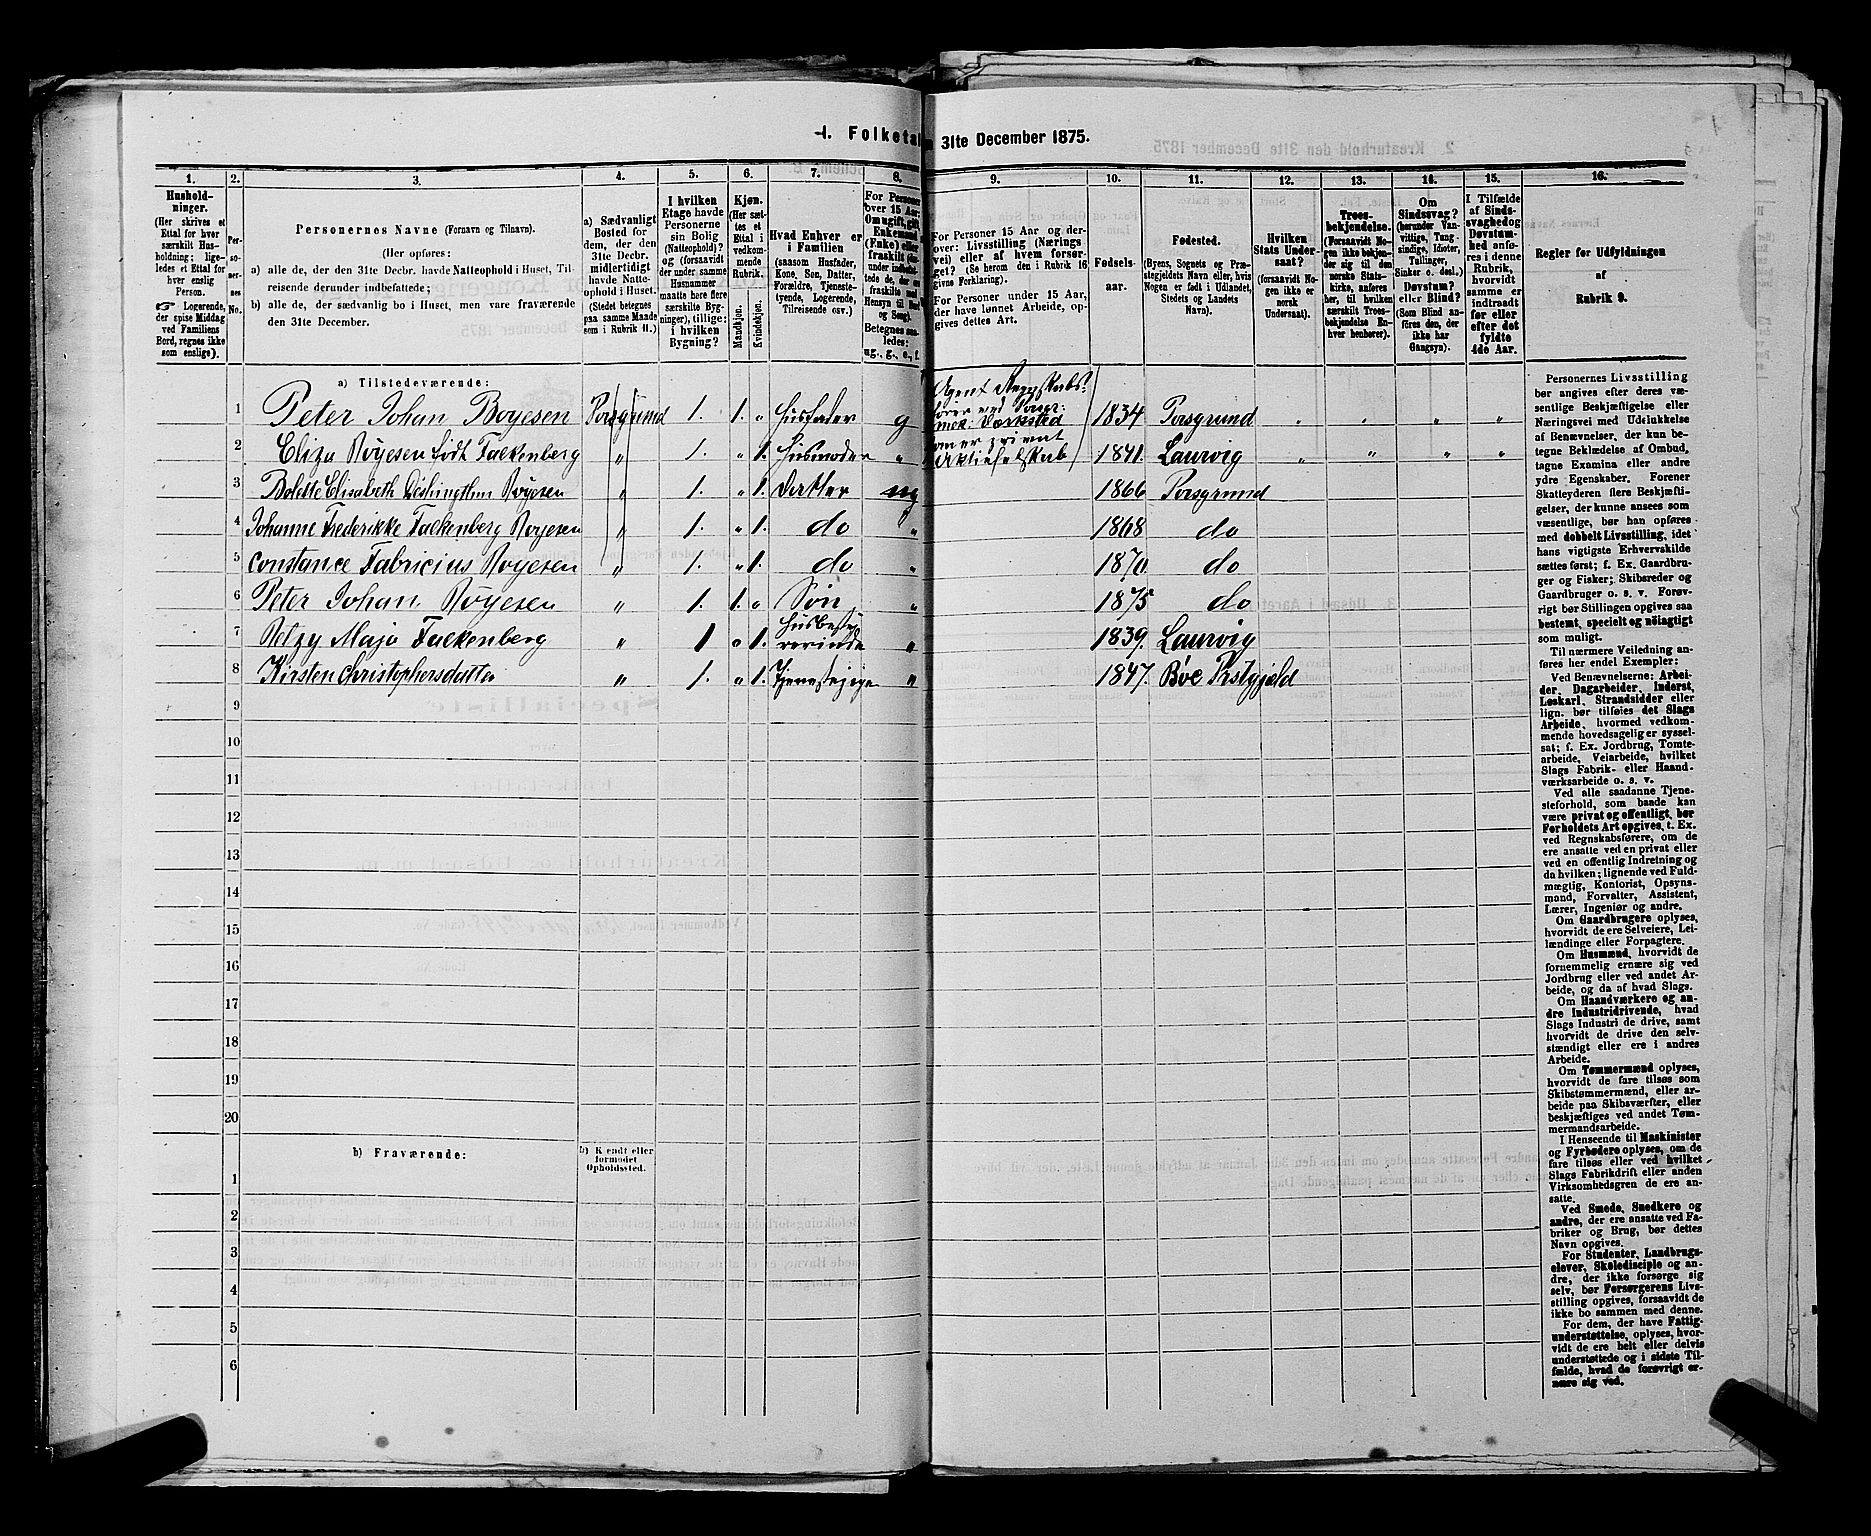 1. Folketal
31te December 1875.
1. 2. 3. 4. 5. 6. 7. 8. 9. 10. 11. 12. 13. 14. 15. 16.
Husholdninger.
(Her skrives et
Ettal for hver
særskilt Hus-
holdning; lige-
ledes et Ettal for
hver enslig
Person.
Logerende,
der spise Middag
ved Familiens
Bord, regnes ikke
som enslige).
Per-
so-
ner-
nes
No.
Personernes Navne (Fornavn og Tilnavn).
(Her opføres:
a) alle de, der den 31te Decbr. havde Natteophold i Huset, Til-
reisende derunder indbefattede;
b) alle de, der sædvanlig bo i Huset, men vare fraværende
den 31te December.
a) Sædvanligt
Bosted for
dem, der den
31te Decbr.
midlertidigt
havde Natte-
ophold i Huset.
(Stedet betegnes
paa samme Maade
som i Rubrik 11.)
I hvilken
Etage havde
Personerne
sin Bolig
(Natteophold)?
og (forsaavidt
der under samme
Husnummer
maatte være flere
særskilte Byg-
ninger), tillige:
i hvilken
Bygning?
Kjøn.
(Her sæt-
tes et
Ettal i
vedkom-
mende
Rubrik.
Mandkjøn.
Kvindekjøn.
Hvad Enhver er
i Familien
(saasom Husfader,
Kone, Søn, Datter,
Forældre, Tjeneste-
tyende, Logerende,
Tilreisende osv.)
For Personer
over 15 Aar:
For Personer 15 Aar og der-
over: Livsstilling (Nærings
vei) eller af hvem forsør-
get? (Se herom den i Rubrik 16
givne Forklaring).
For Personer under 15 Aar,
der have lønnet Arbeide, op-
gives dettes Art.
Fødsels-
aar.
Fødested.
(Byens, Sognets og Præ-
stegjeldets Navn eller, hvis
Nogen er født i Udlandet,
Stedets og Landets
Navn).
Hvilken
Stats Under-
saat?
(forsaavidt No-
gen ikke er
norsk
Undersaat).
Troes-
bekjendelse.
(Forsaavidt No-
gen ikke bekjen-
der sig til den
norske Stats-
kirke, anføres
her, til hvilken
særskilt Troes-
bekjendelse En-
hver henhører).
Om
Sindssvag?
(herunder Van-
vittige, Tung-
sindige, Idioter,
Tullinger,
Sinker o. desl.)
Døvstum?
eller Blind?
(Som Blind an-
føres den, der
ikke har
Gangsyn).
I Tilfælde
af Sinds-
svaghed og
Døvstum-
hed anfø-
res i denne
Rubrik,
hvorvidt
samme er
indtraadt
før eller
efter det
fyldte
4de Aar.
Regler for Udfyldningen
af
Rubrik 9.
a) Tilstedeværende:
1 Peter Johan Boyesen Porsgrund 1. 1. „ Husfader g Agent Regnskabs: 1834 Porsgrund „ „ „ „
2 Eliza Boyesen født Falkenberg „ 1. „ 1. Husmoder „ 1841. Laurvig „ „ „ „
3 Bolette Elisabeth Boyesen „ 1. „ 1. Datter ug 1866 Porsgrund
4 Johanne Frederikke Falkenberg Boyesen „ 1. „ 1. do „ 1868 do
5 Constance Fabricius Boyesen „ 1. „ 1. do „ 1870. do
6 Peter Johan Boyesen „ 1. 1. „ Søn „ 1875 do
7 Betzy Maja Falkenberg „ 1 „ 1. Husbesty rerinde „ 1839. Laurvig
8 Kirsten Christophersdatter „ 1. „ 1. Tjenestepige „ 1847. Bøe Prstgjæld
9
10
11
12
13
14
15
16
17
18
19
20
b) Fraværende: b) Kjendt eller
formodet
Opholdssted.
1
2
3
4
5
6
Personernes Livsstilling
bør angives efter deres væ-
sentlige Beskjæftigelse eller
Næringsvei med Udelukkelse
af Benævnelser, der kun be-
tegne Beklædelse af Ombud,
tagne Examina eller andre
ydre Egenskaber. Forener
Skatteyderen flere Beskjæfti-
gelser, der kunne ansees som
væsentlige, bør han opføres
med dobbelt Livsstilling, idet
hans vigtigste Erhvervskilde
sættes først; f. Ex. Gaardbru-
ger og Fisker; Skibsreder og
Gaardbruger o. s. v. Forøv-
rigt bør Stillingen opgives saa
bestemt, specielt og nöiagtigt
som muligt.
Til nærmere Veiledning an-
føres her endel Exempler:
Ved Benævnelserne: Arbei-
der, Dagarbeider, Inderst,
Løskarl, Strandsidder eller
lign. bør tilføies det Slags
Arbeide, hvormed vedkom-
mende hovedsagelig er syssel-
sat; f. Ex. Jordbrug, Tomte-
arbeide, Veiarbeide, hvilket
Slags Fabrik- eller Haand-
værksarbeide o. s. v.
Ved alle saadanne Tjene-
steforhold, som baade kan
være privat og offentligt, bør
Forholdets Art opgives, t. Ex.
ved Regnskabsførere, om de
ere ansatte ved en privat eller
ved en offentlig Indretning og
da hvilken; lignende ved Fuld-
mægtig, Kontorist, Opsyns-
mand, Forvalter, Assistent,
Lærer, Ingeniør og andre.
Om Gaardbrugere oplyses,
hvorvidt de ere Selveiere, Lei-
lændinge eller Forpagtere.
Om Husmænd, hvorvidt de
fornemmelig ernære sig ved
Jordbrug eller ved andet Ar-
beide, og da af hvad Slags.
Om Haandværkere og an-
dre Industridrivende, hvad
Slags Industri de drive, samt
hvorvidt de drive den selv-
stændigt eller ere i andres
Arbeide.
Om Tømmermænd oplyses,
hvorvidt de fare tilsøs som
Skibstømmermænd, eller ar-
beide paa Skibsværfter, eller
beskjæftiges ved andet Tøm-
mermandsarbeide.
I Henseende til Maskinister
og Fyrbødere oplyses, om de
fare tilsøs eller ved hvilket
Slags Fabrikdrift eller anden
Virksomhedsgren de ere an-
satte.
Ved Smede, Snedkere og
andre, der ere ansatte ved Fa-
briker og Brug, bør dettes
Navn opgives.
For Studenter, Landbrugs-
elever, Skoledisciple og an-
dre, der ikke forsørge sig
selv, bør Forsørgerens Livs-
stilling opgives, forsaavidt de
ikke bo sammen med denne.
For dem, der have Fattig-
understøttelse, oplyses, hvor-
vidt de ere helt eller delvis
understøttede og i sidste Til-
fælde, hvad de forøvrigt er-
nære sig ved.